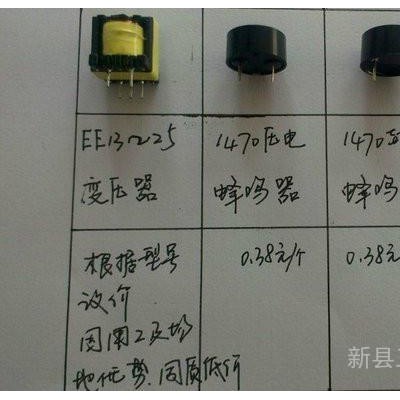 EE13~25
变压器
1470压电
蜂鸣器
1470
蜂鸣
根据型号
议价
因用工及场
地优势.同质低价
0.38元/个
0.38元
新县